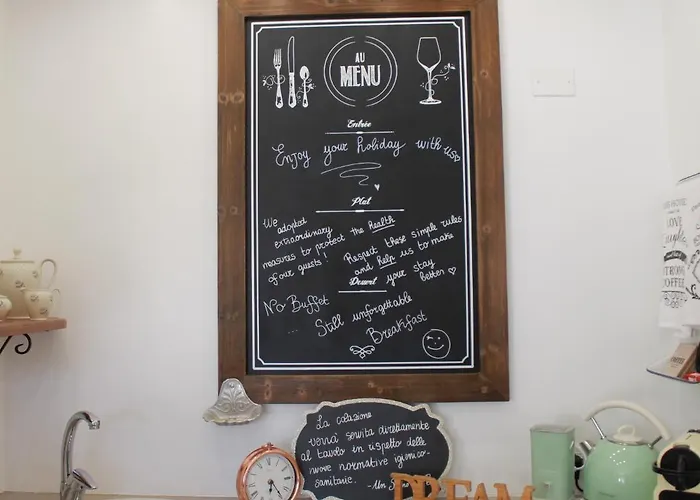 AU
MENU
Entrée
Enjoy your holiday with us
Plat
We adopted
extraordinary
measures to protect the Health
of our guests!
Respect these simple rules
and help us to make
your stay
better
Dessert
No Buffet
... Still unforgettable
Breakfast
La colazione
verrà servita direttamente
al tavolo in rispetto delle
nuove normative igienico-
sanitarie.
DREAM
LOVE
STRONG
COFFEE